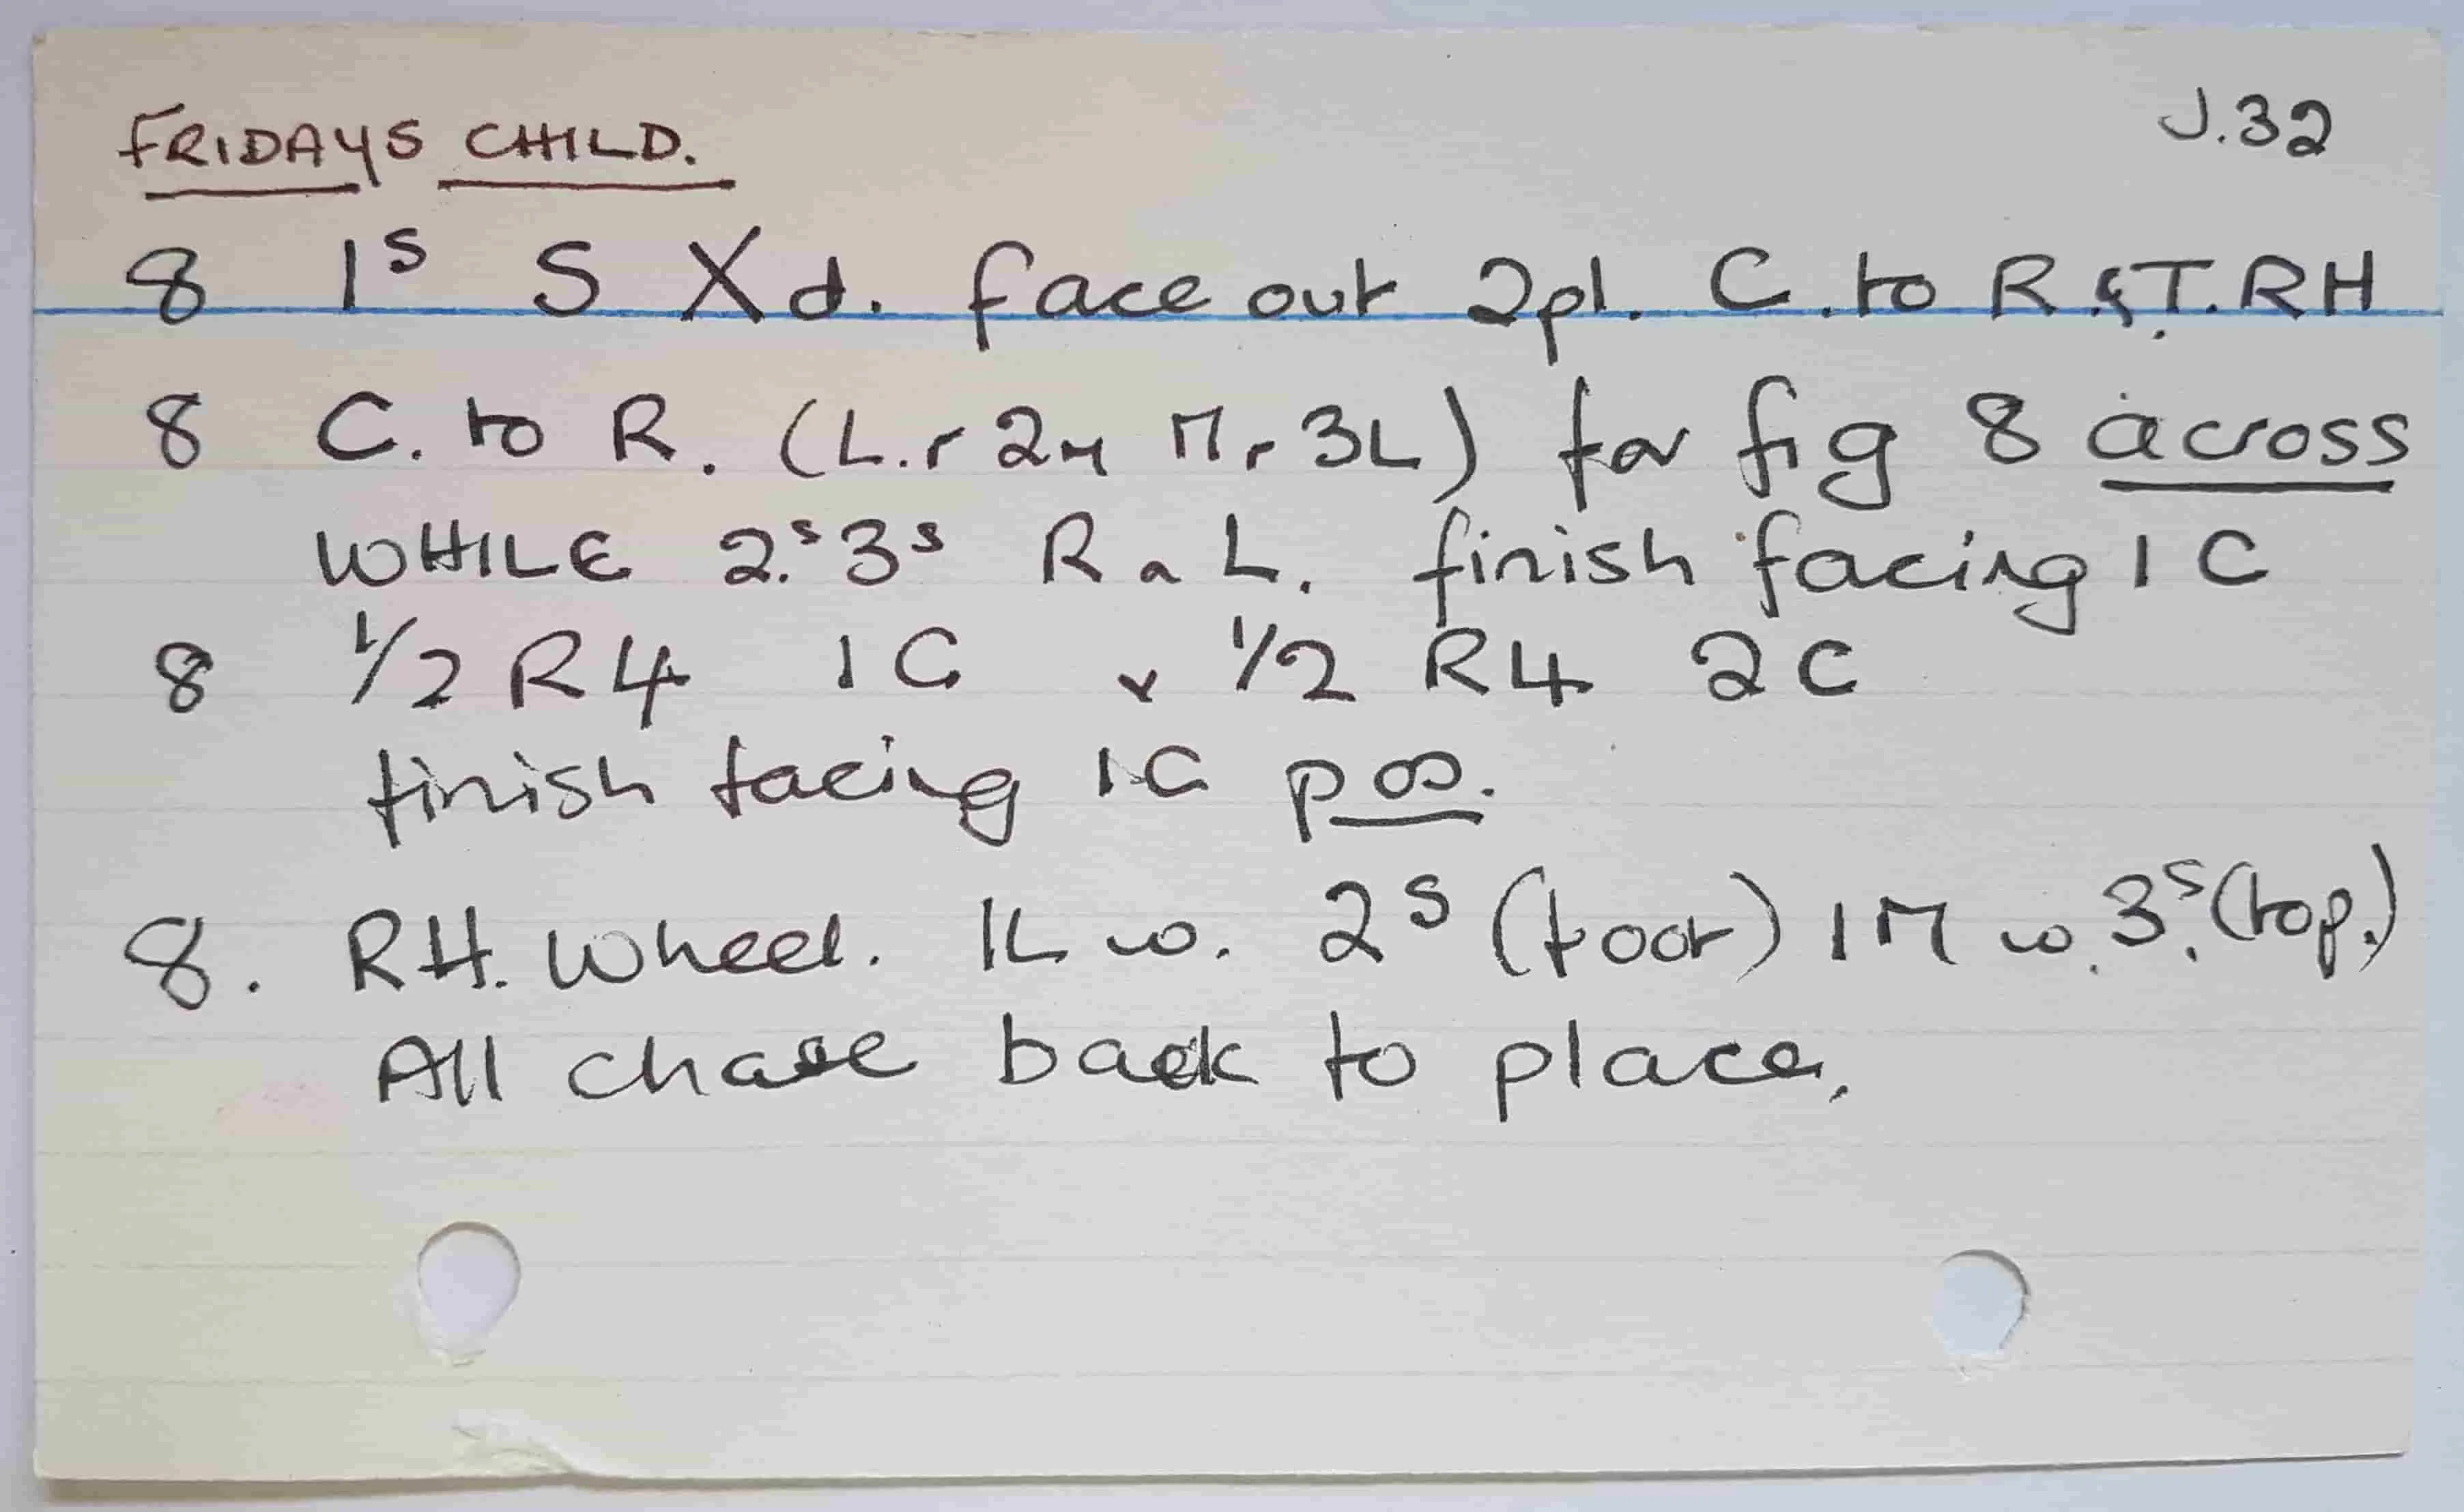 FRIDAYS CHILD. J.32
8 1s S X d. face out 2pl. C. to R & T. RH
8 C. to R. (L. r 2M M r 3L) for fig 8 across
WHILE 2s 3s R a L. finish facing 1C
8 1/2 R4 1C & 1/2 R4 2C
finish facing 1C pos.
8. RH. Wheel. 1L w. 2s (foot) 1M w. 3s (top.)
All chase back to place.